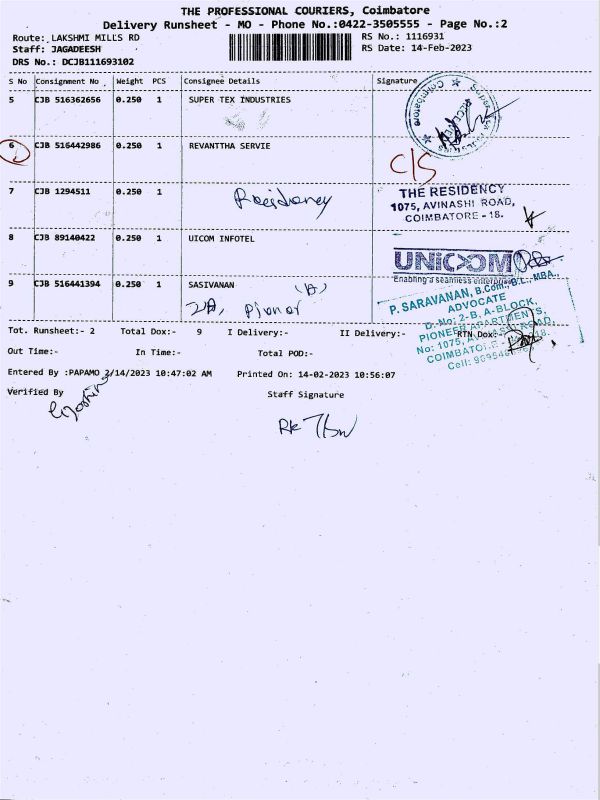 THE PROFESSIONAL COURIERS, Coimbatore
Delivery Runsheet - MO - Phone No.:0422-3505555 - Page No.:2
Route: LAKSHMI MILLS RD RS No.: 1116931
Staff: JAGADEESH RS Date: 14-Feb-2023
DRS No.: DCJB111693102
S No Consignment No Weight PCS Consignee Details Signature
5 CJB 516362656 0.250 1 SUPER TEX INDUSTRIES
Coimbatore
6 CJB 516442986 0.250 1 REVANTTHA SERVIE
C/S
7 CJB 1294511 0.250 1 Residency
THE RESIDENCY
1075, AVINASHI ROAD,
COIMBATORE - 18.
8 CJB 89140422 0.250 1 UICOM INFOTEL
UNICOM
Enabling a seamless enterprise
9 CJB 516441394 0.250 1 SASIVANAN (A)
2A, Pionar
P. SARAVANAN, B.Com., B.L., MBA.,
ADVOCATE
D.No: 2-B, A-BLOCK,
PIONEER APARTMENTS,
No: 1075, AVINASHI ROAD,
COIMBATORE - 18.
Cell:
Tot. Runsheet:- 2 Total Dox:- 9 I Delivery:- II Delivery:- RTN Dox:-
Out Time:- In Time:- Total POD:-
Entered By :PAPAMO 2/14/2023 10:47:02 AM Printed On: 14-02-2023 10:56:07
Verified By Staff Signature